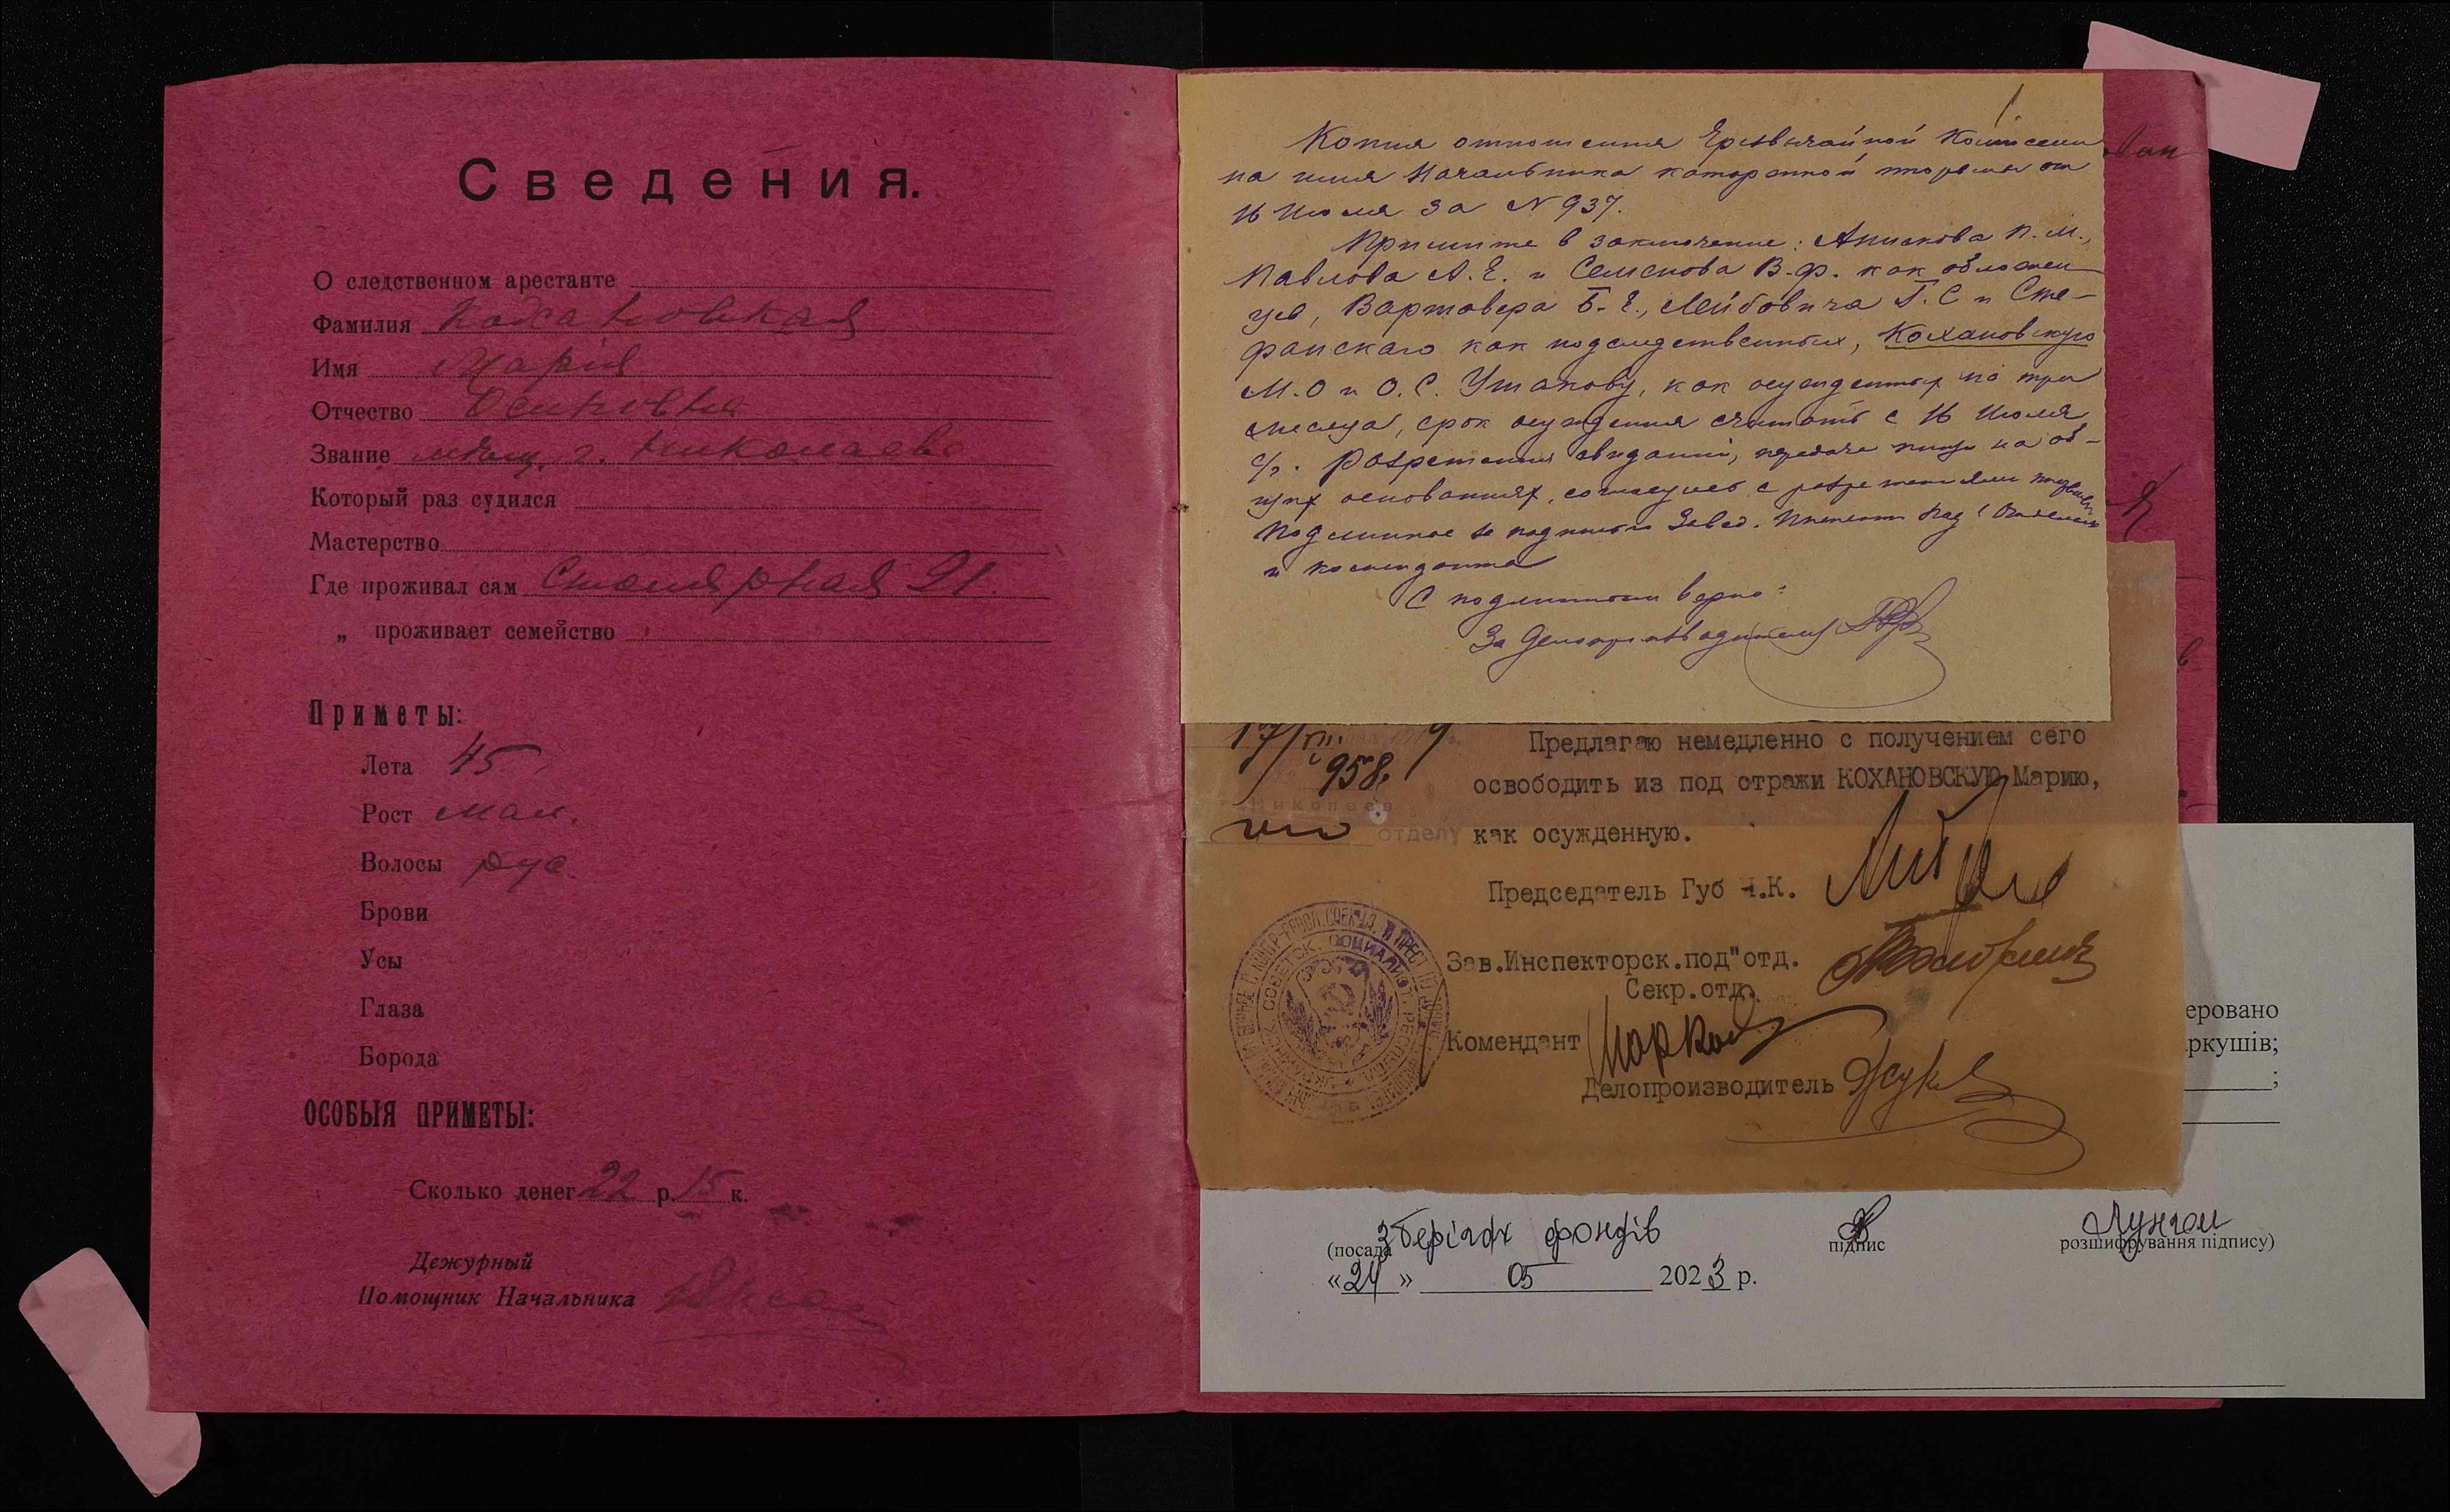 Сведения.
О следственном арестанте
Фамилия Кохановская
Имя Марія
Отчество Осиповна
Звание мѣщ. г. Николаева
Который раз судился
Мастерство
Где проживал сам Столярная 21.
„ проживает семейство
Приметы:
Лета 45
Рост мал.
Волосы рус.
Брови
Усы
Глаза
Борода
ОСОБЫЯ ПРИМЕТЫ:
Сколько денег 22 р. 15 к.
Дежурный
Помощник Начальника
1
Копия отношения Чрезвычайной Комиссии
на имя Начальника каторжной тюрьмы от
16 Июля за N 937.
Примите в заключение: Анискова П. М.,
Павлова А. Е. и Семенова В. Ф. как обложен-
цев, Вартовера Б. Е., Лейбовича Г. С и Сте-
фанскаго как подследственных, Кохановскую
М. О и О. С. Ушакову, как осужденных на три
месяца, срок осуждения считать с 16 Июля
с/г. Разрешения свиданий, передачи пищи на об-
щих основаниях, согласуясь с разрешениями
Подлинное за подписью Завед.
и коменданта
С подлинным верно:
За Делопроизводителя
17/VII
958.
Николаев
отделу
Предлагаю немедленно с получением сего
освободить из под стражи КОХАНОВСКУЮ Марию,
как осужденную.
Председатель Губ Ч.К.
Зав.Инспекторск.под"отд.
Секр.отд.
Комендант
Делопроизводитель
еровано
ркушів;
;
зберігач фондів
(посада підпис розшифрування підпису)
«24» 05 2023 р.